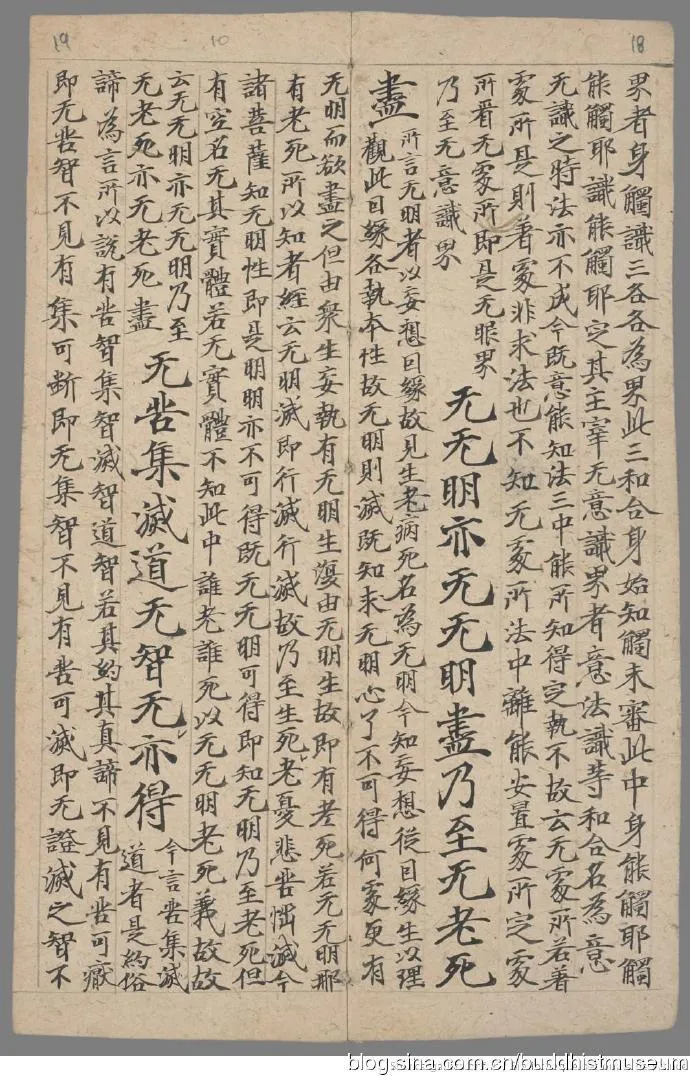 19
10
18
界者身觸識三各各為界此三和合身始知觸未審此中身能觸耶觸
能觸耶識能觸耶定其主宰无意識界者意法識等和合名為意
无識之時法亦不成今既意能知法三中能所知得定執不故云无處所若著
處所是則著處非求法也不知无處所法中離能安置處所定處
所看无處所即是无眼界
乃至无意識界
无无明亦无无明盡乃至无老死
盡
所言无明者以妄想因緣故見生老病死名為无明今知妄想從因緣生以理
觀此因緣各執本性故无明則滅既知末无明心了不可得何處更有
无明而欲盡之但由衆生妄執有无明生復由无明生故即有老死若无无明那
有老死所以知者經云无明滅即行滅行滅故乃至生死老憂悲苦惱滅今
諸菩薩知无明性即是明明亦不可得既无无明可得即知无明乃至老死但
有空名无其實體若无實體不知此中誰老誰死以无无明老死義故故
云无无明亦无无明乃至
无老死亦无老死盡
无苦集滅道无智无亦得
今言苦集滅
道者是約俗
諦為言所以說有苦智集智滅智道智若其約其真諦不見有苦可厭
即无苦智不見有集可断即无集智不見有苦可滅即无證滅之智不
blog.sina.com.cn/buddhistmuseum